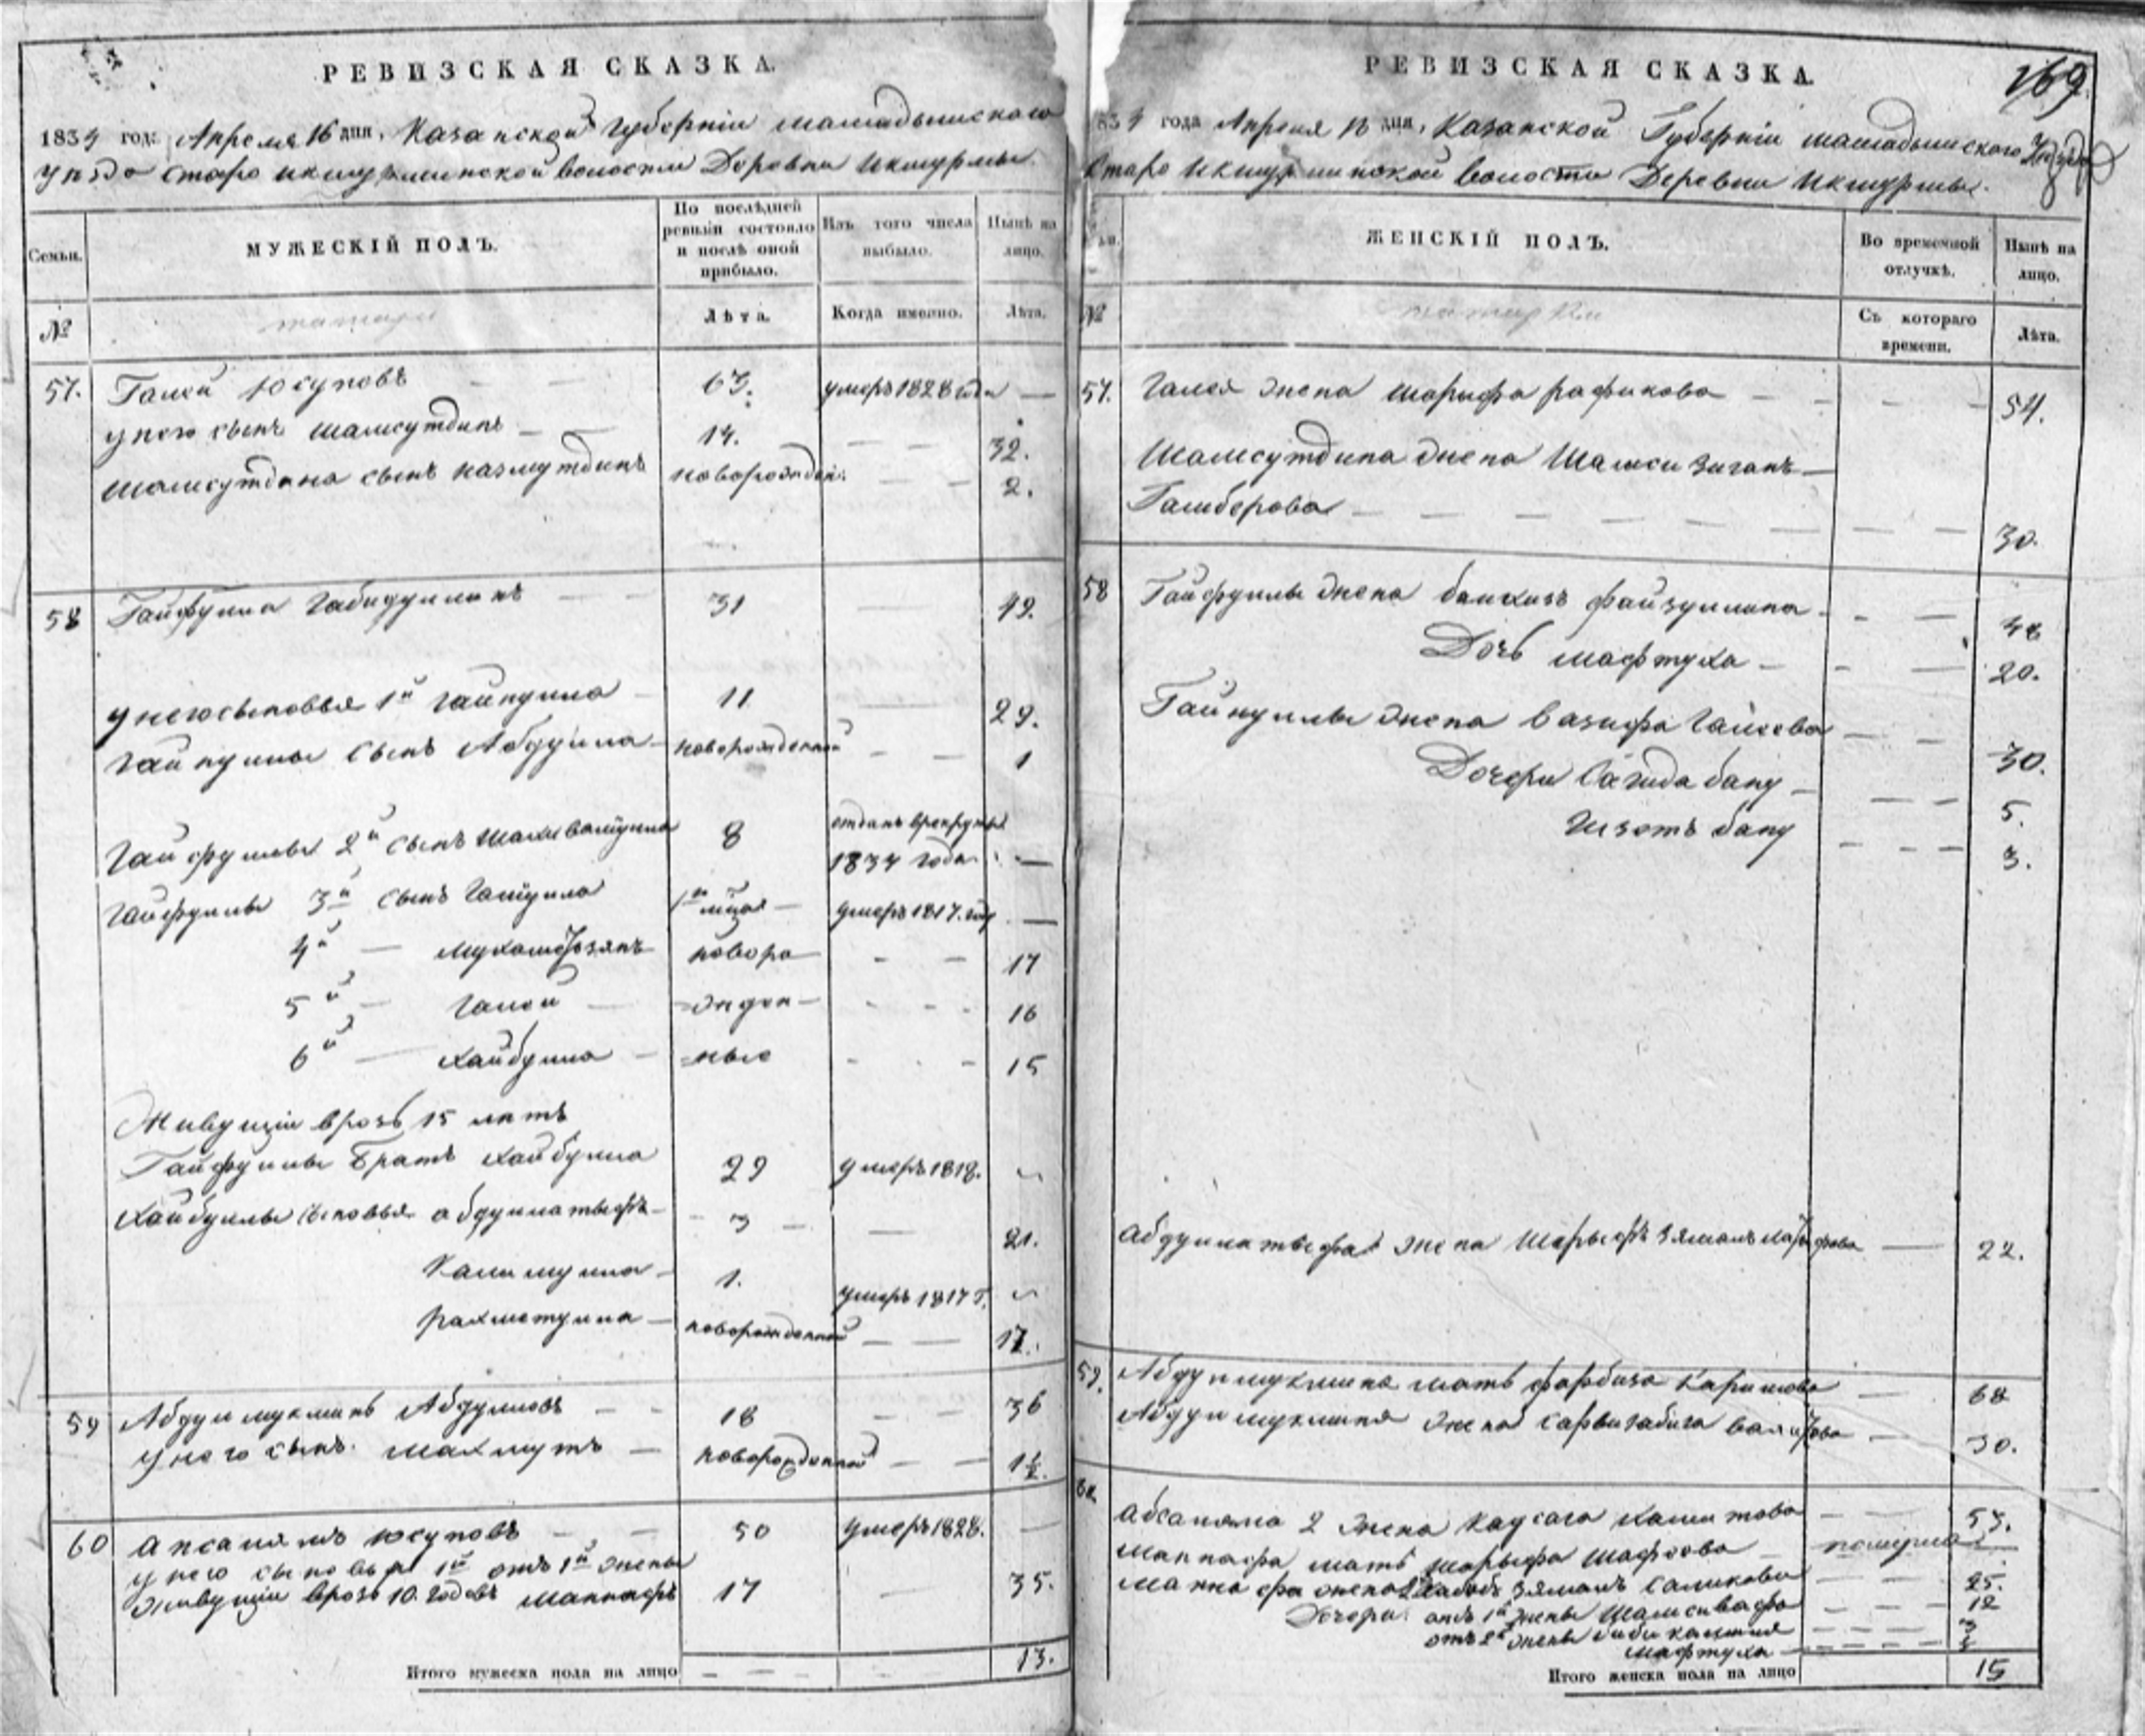 РЕВИЗСКАЯ СКАЗКА.
1834 год: Апреля 16 дня, Казанской Губерніи мамадышскаго
уѣзда старо икшурминской волости Деревни Икшурмы.
Семьи.
МУЖЕСКІЙ ПОЛЪ.
По послѣдней ревизіи состояло и послѣ оной прибыло.
Изъ того числа выбыло.
Нынѣ на лицо.
№
татары
Лѣта.
Когда именно.
Лѣта.
57. Галей Юсуповъ — — 63. умеръ 1828 года —
у него сынъ шамсутдинъ — — 14. — — 32.
шамсутдина сынъ назмутдинъ новорожден: — — 2.
58 Гайфулла Габидуллинъ — — 31 49.
у него сыновья 1й Гайнулла — 11 — 29.
Гайнуллы сынъ Абдулла — новорожденной — — 1
Гайфуллы 2й сынъ шахивалиулла 8 отданъ врекруты
1834 года. —
Гайфуллы 3й сынъ Галиулла умеръ 1817. году —
4й — мухаметзянъ новоро — — 17
5й — Галей — =жден — - - - 16
6й — хайбулла — =ные - - - 15
Живущіи врозь 15 лѣтъ
Гайфуллы братъ хайбулла 29 умеръ 1818.
хайбуллы сыновья абдуллатыфъ — 3 — — 21.
Калимулла — 1. умеръ 1817 г.
рахметулла — новорожденной — — 17.
59 Абдулмукминъ Абдулловъ — — 18 — — 36
у него сынъ. махмутъ — новорожденной — — 1½.
60 апсалямъ юсуповъ — — 50 умеръ 1828. —
у него сыновья 1й отъ 1й жены
живущіи врозь 10. годовъ маннафъ 17 — 35.
Итого мужеска пола на лицо — — — 13.
РЕВИЗСКАЯ СКАЗКА.
169.
1834 года Апреля 16 дня, Казанской Губерніи мамадышскаго Уезда
Старо Икшурминской волости Деревни Икшурмы.
ЖЕНСКІЙ ПОЛЪ.
Во временной отлучкѣ.
Нынѣ на лицо.
№
татарки
Съ котораго времени.
Лѣта.
57. Галея жена шарифа рафикова — — — — 54.
Шамсутдина жена Шамси зиганъ —
Гамберова — — — — — — — 30.
58 Гайфуллы жена банхизъ файзуллина - - — 48
Дочь мафтуха — - — 20.
Гайнуллы жена вазифа Галеева — — 30.
Дочери Сагида бану — — — 5.
Гизетъ бану - — — 3.
абдуллатыфа жена Шарыфъ зямалъ — 22.
59. Абдулмукмина мать фарбиза Каримова — 68
Абдулмукмина жена сарвигабиза валитова — 30.
60. абсаляма 2 жена Каусага хамитова — — 53.
маннафа мать шарыфа Шафеева — померла —
маннафа жена зямалъ Саликова — — 25.
Дочери: отъ 1й жены Шамсивафа — — — 12
отъ 2й жены биби камиля — — — — 3
мафтуха — — — — —
Итого женска пола на лицо 15